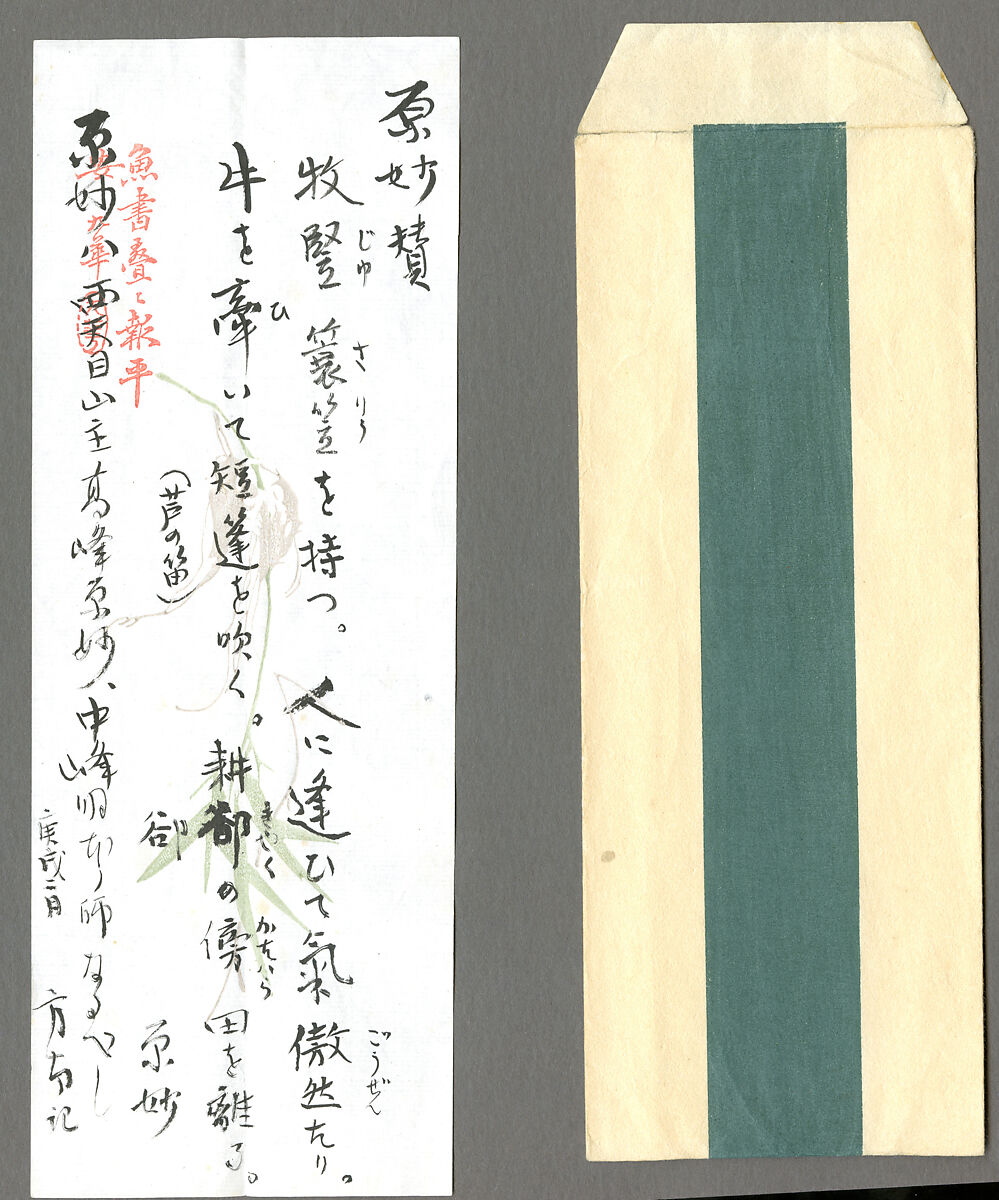 原妙賛
牧豎簑笠を持つ。人に逢ひて氣傲然たり。
じゆ
さりう
ごうぜん
牛を牽いて短篷を吹く。耕郤の傍田を離る。
ひ
きやく
かたはら
(芦の笛)
郤
原妙
魚書疊〻報平
安九華
原妙ハ西天目山主高峰原妙、中峰明本の師なるべし
庚戌二月
方南記